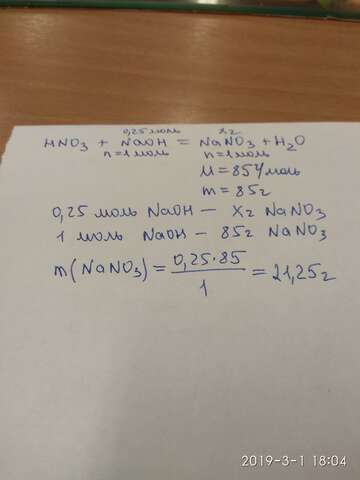 0,25 моль xг
HNO3 + NaOH = NaNO3 + H2O
n=1моль n=1моль
M=85г/моль
m=85г
0,25 моль NaOH — xг NaNO3
1 моль NaOH — 85г NaNO3
m(NaNO3) = 0,25·85 / 1 = 21,25г
2019-3-1 18:04